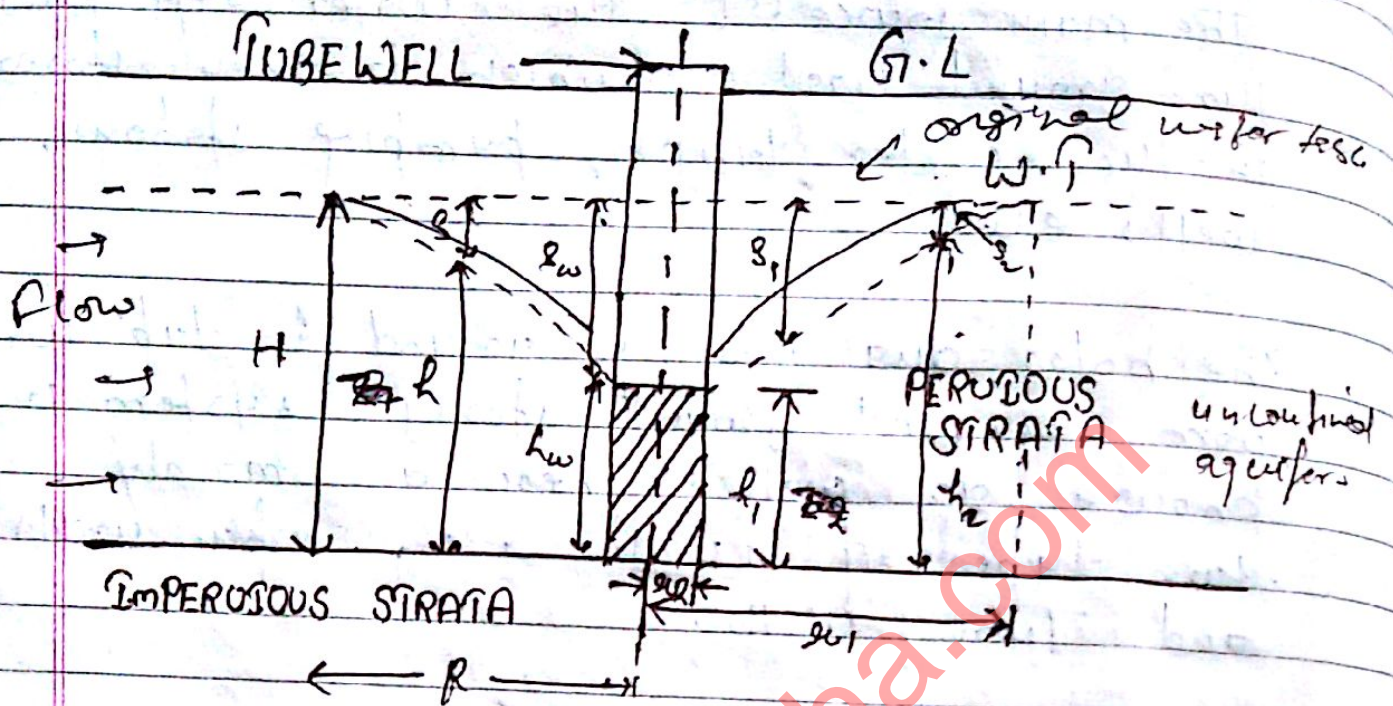 TUBEWELL
G.L
original water
W.T
s
sw
s1
s2
Flow
H
h
hw
h1
h2
PERVIOUS
STRATA
unconfined
aquifer.
IMPERVIOUS STRATA
r1
R
ba.com